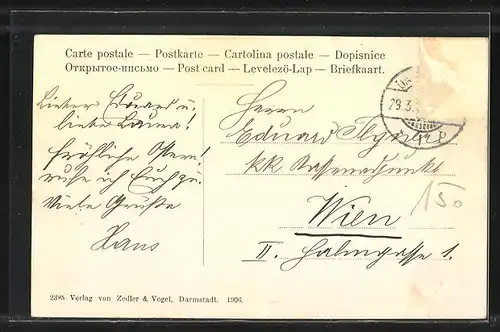 Carte postale — Postkarte — Cartolina postale — Dopisnice
Открытое-письмо — Post card — Levelező-Lap — Briefkaart.
29.3.
Lieber Eduard u.
liebe Laura!
Fröhliche Ostern!
rufe ich Euch zu.
Viele Grüße
Hans
Herrn
Eduard
kk
Wien
II. 1.
150
2395 Verlag von Zedler & Vogel, Darmstadt. 1906.